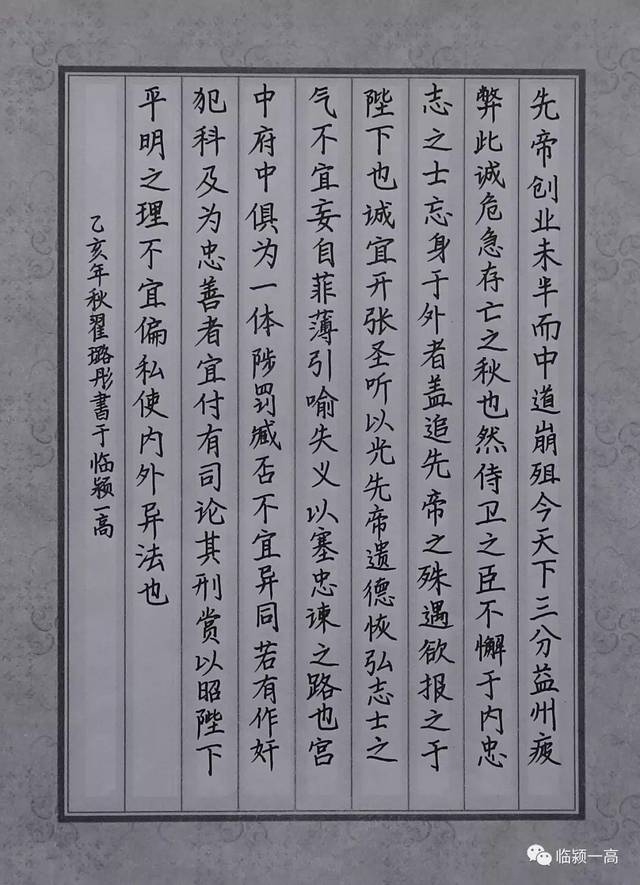 先帝创业未半而中道崩殂今天下三分益州疲
弊此诚危急存亡之秋也然侍卫之臣不懈于内忠
志之士忘身于外者盖追先帝之殊遇欲报之于
陛下也诚宜开张圣听以光先帝遗德恢弘志士之
气不宜妄自菲薄引喻失义以塞忠谏之路也宫
中府中俱为一体陟罚臧否不宜异同若有作奸
犯科及为忠善者宜付有司论其刑赏以昭陛下
平明之理不宜偏私使内外异法也
乙亥年秋翟璐彤書于临颍一高
临颍一高